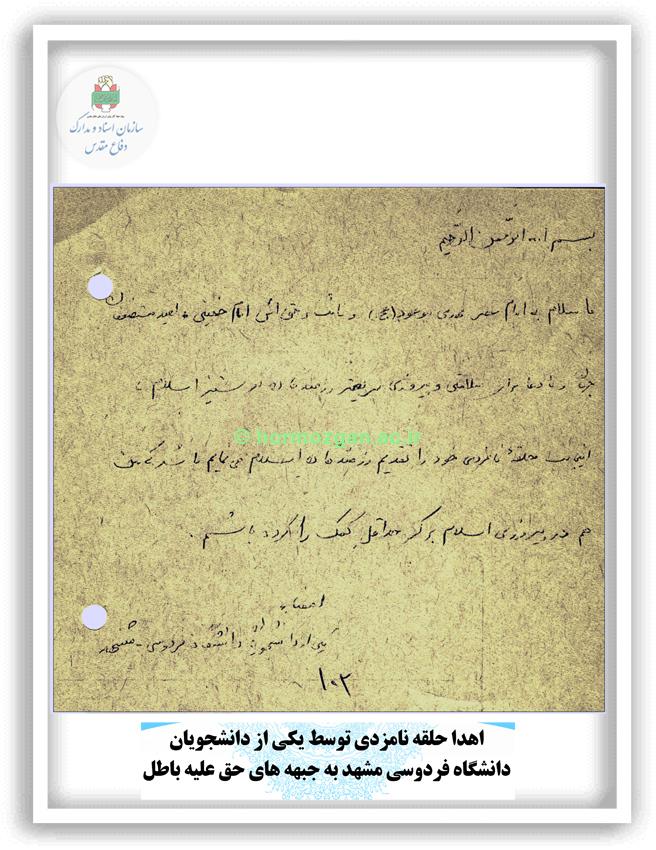 سازمان اسناد و مدارک
دفاع مقدس
بسم الله الرحمن الرحیم
با سلام به امام عصر مهدی موعود (عج) و نائب بر حقش امام خمینی امید مستضعفان
جهان و با دعا برای سلامتی و پیروزی رزمندگان اسلام
اینجانب حلقهٔ نامزدی خود را تقدیم رزمندگان اسلام می نمایم تا شاید که من
هم در پیروزی اسلام بر کفر حداقل کمک را کرده باشم.
© hormozgan.ac.ir
امضاء
یکی از دانشجویان دانشگاه فردوسی - مشهد
۱۰۲
اهدا حلقه نامزدی توسط یکی از دانشجویان
دانشگاه فردوسی مشهد به جبهه های حق علیه باطل